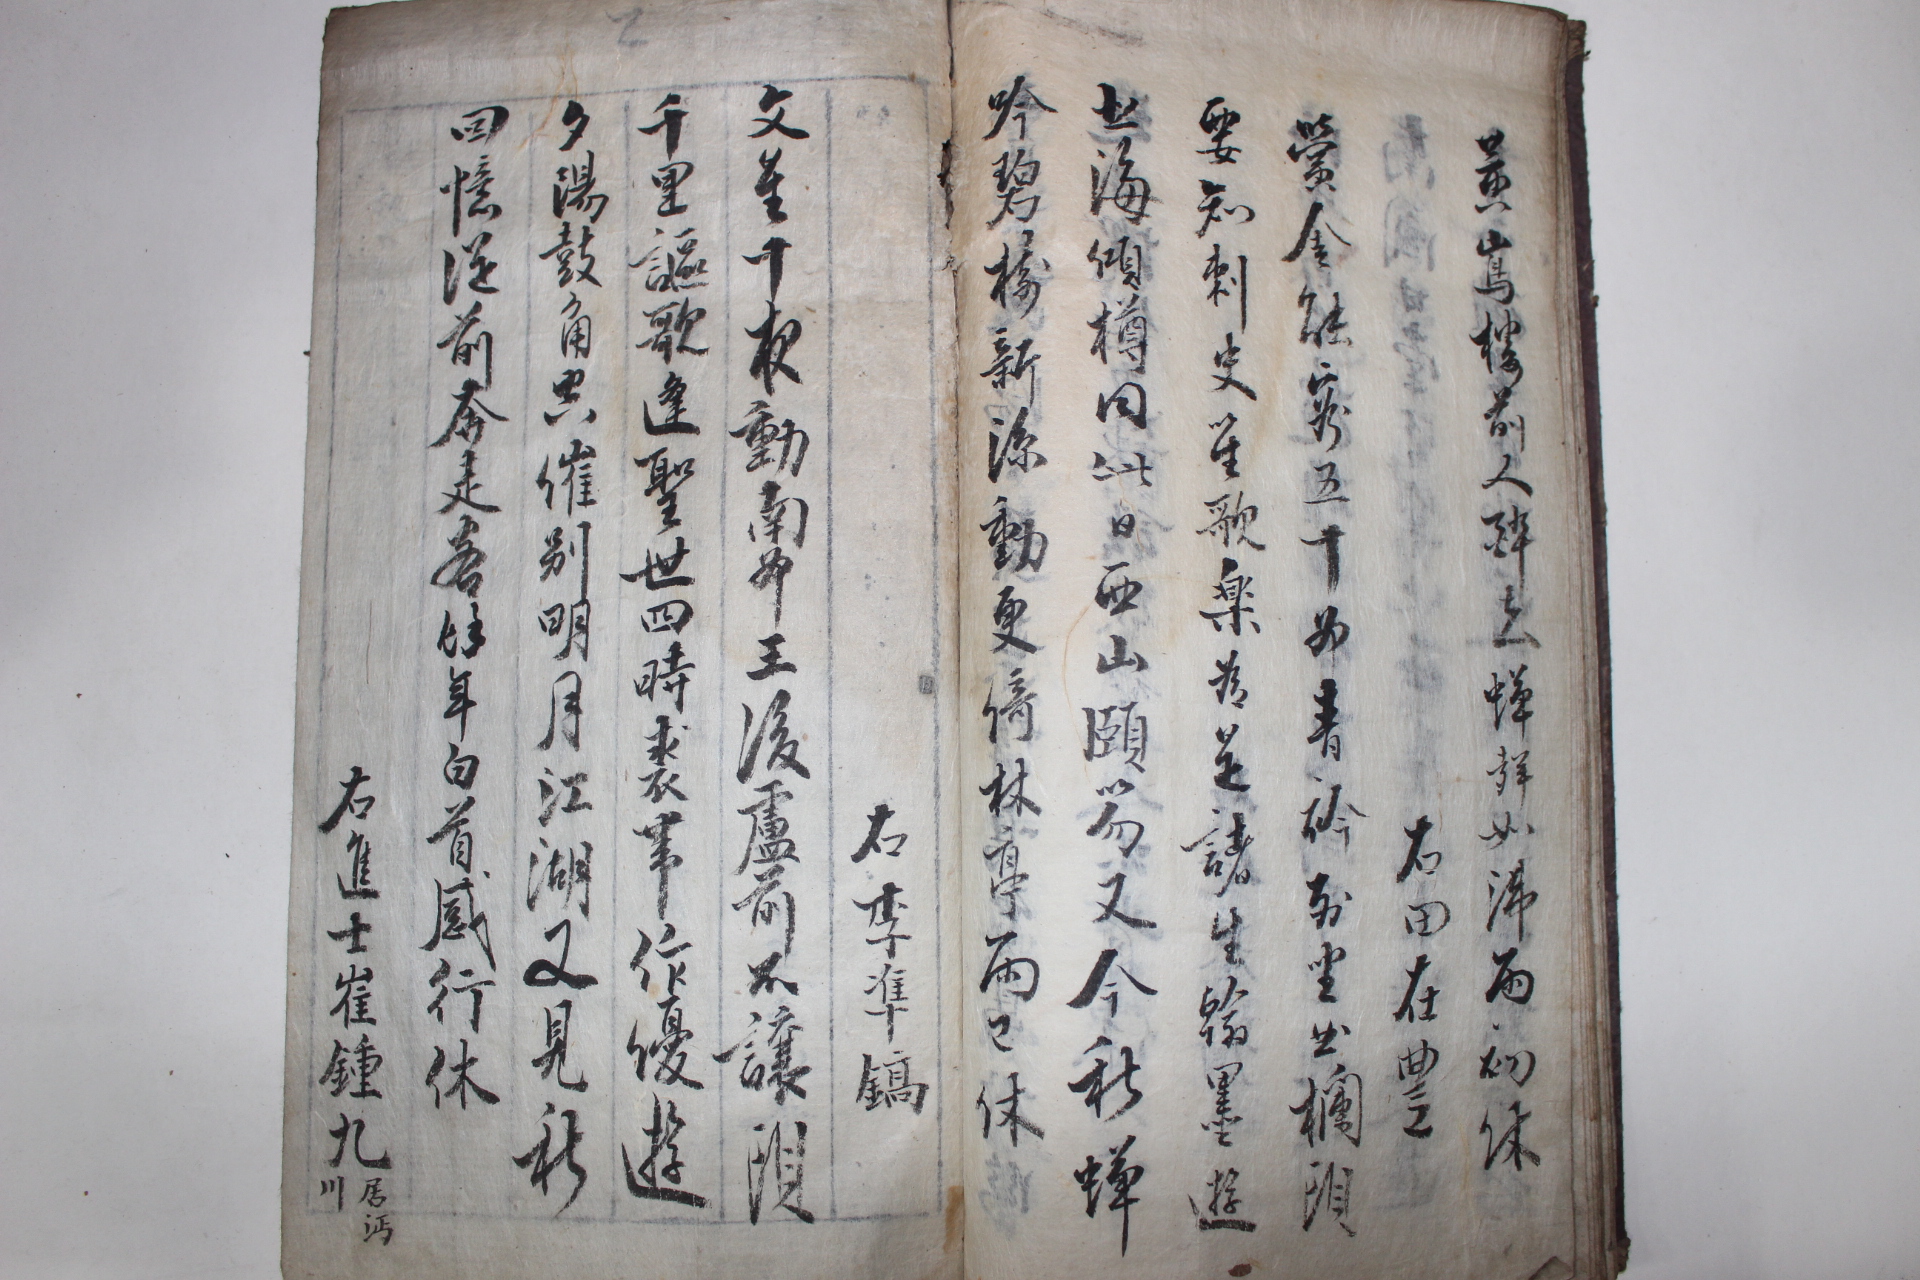 燕嶌樓前人醉去蟬聲如沸雨初休
右田在豊
黌舍能容五十州青衿列坐曲欄頭
要知刺史笙歌樂爲是諸生翰墨遊
北海傾樽同此日西山頤笏又今秋蟬
吟碧樹新凉動更倚林亭雨已休
右李準鎬
文星十夜動南州王後盧前不讓頭
千里謳歌逢聖世四時裘帶作優遊
夕陽鼓角思催別明月江湖又見秋
回憶從前奔走客暮年白首感行休
右進士崔鍾九居沔川